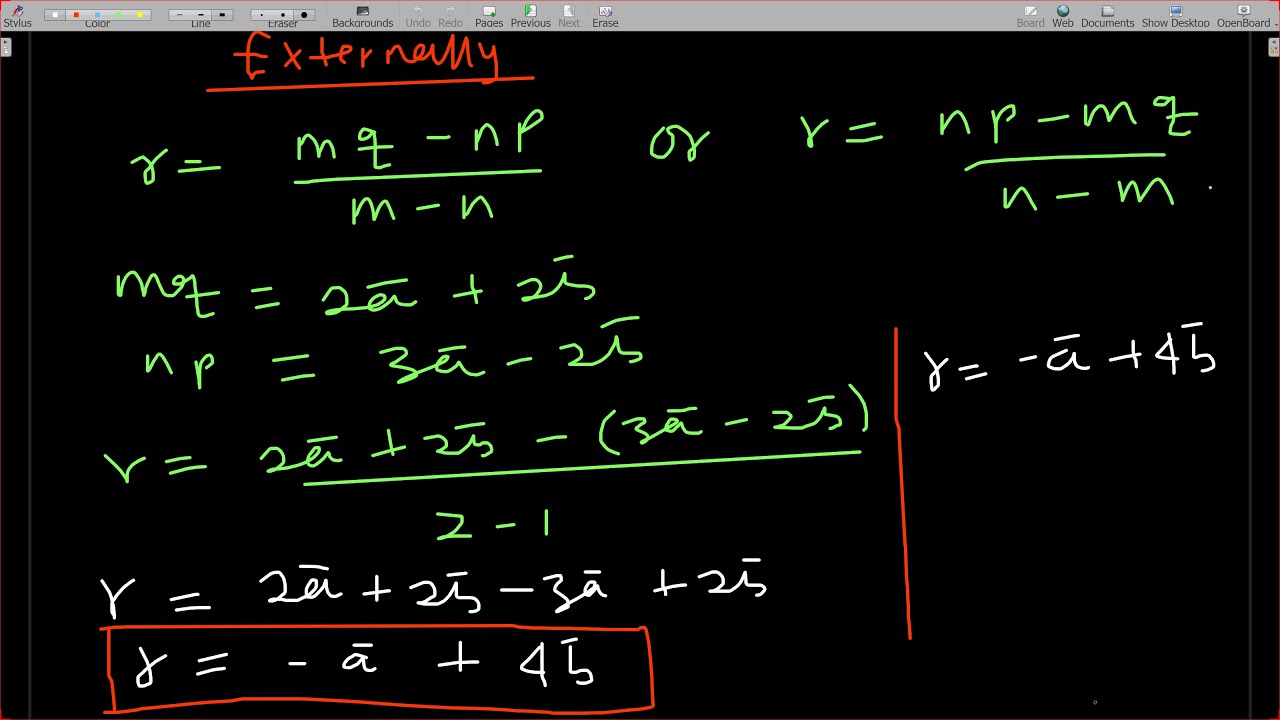 Stylus Color Line Eraser Backgrounds Undo Redo Pages Previous Next Erase Board Web Documents Show Desktop OpenBoard
Externally
r = mq - np / m - n or r = np - mq / n - m .
mq = 2a̅ + 2b̅
np = 3a̅ - 2b̅
r = -a̅ + 4b̅
r = 2a̅ + 2b̅ - (3a̅ - 2b̅) / 2 - 1
r = 2a̅ + 2b̅ - 3a̅ + 2b̅
r = - a̅ + 4b̅